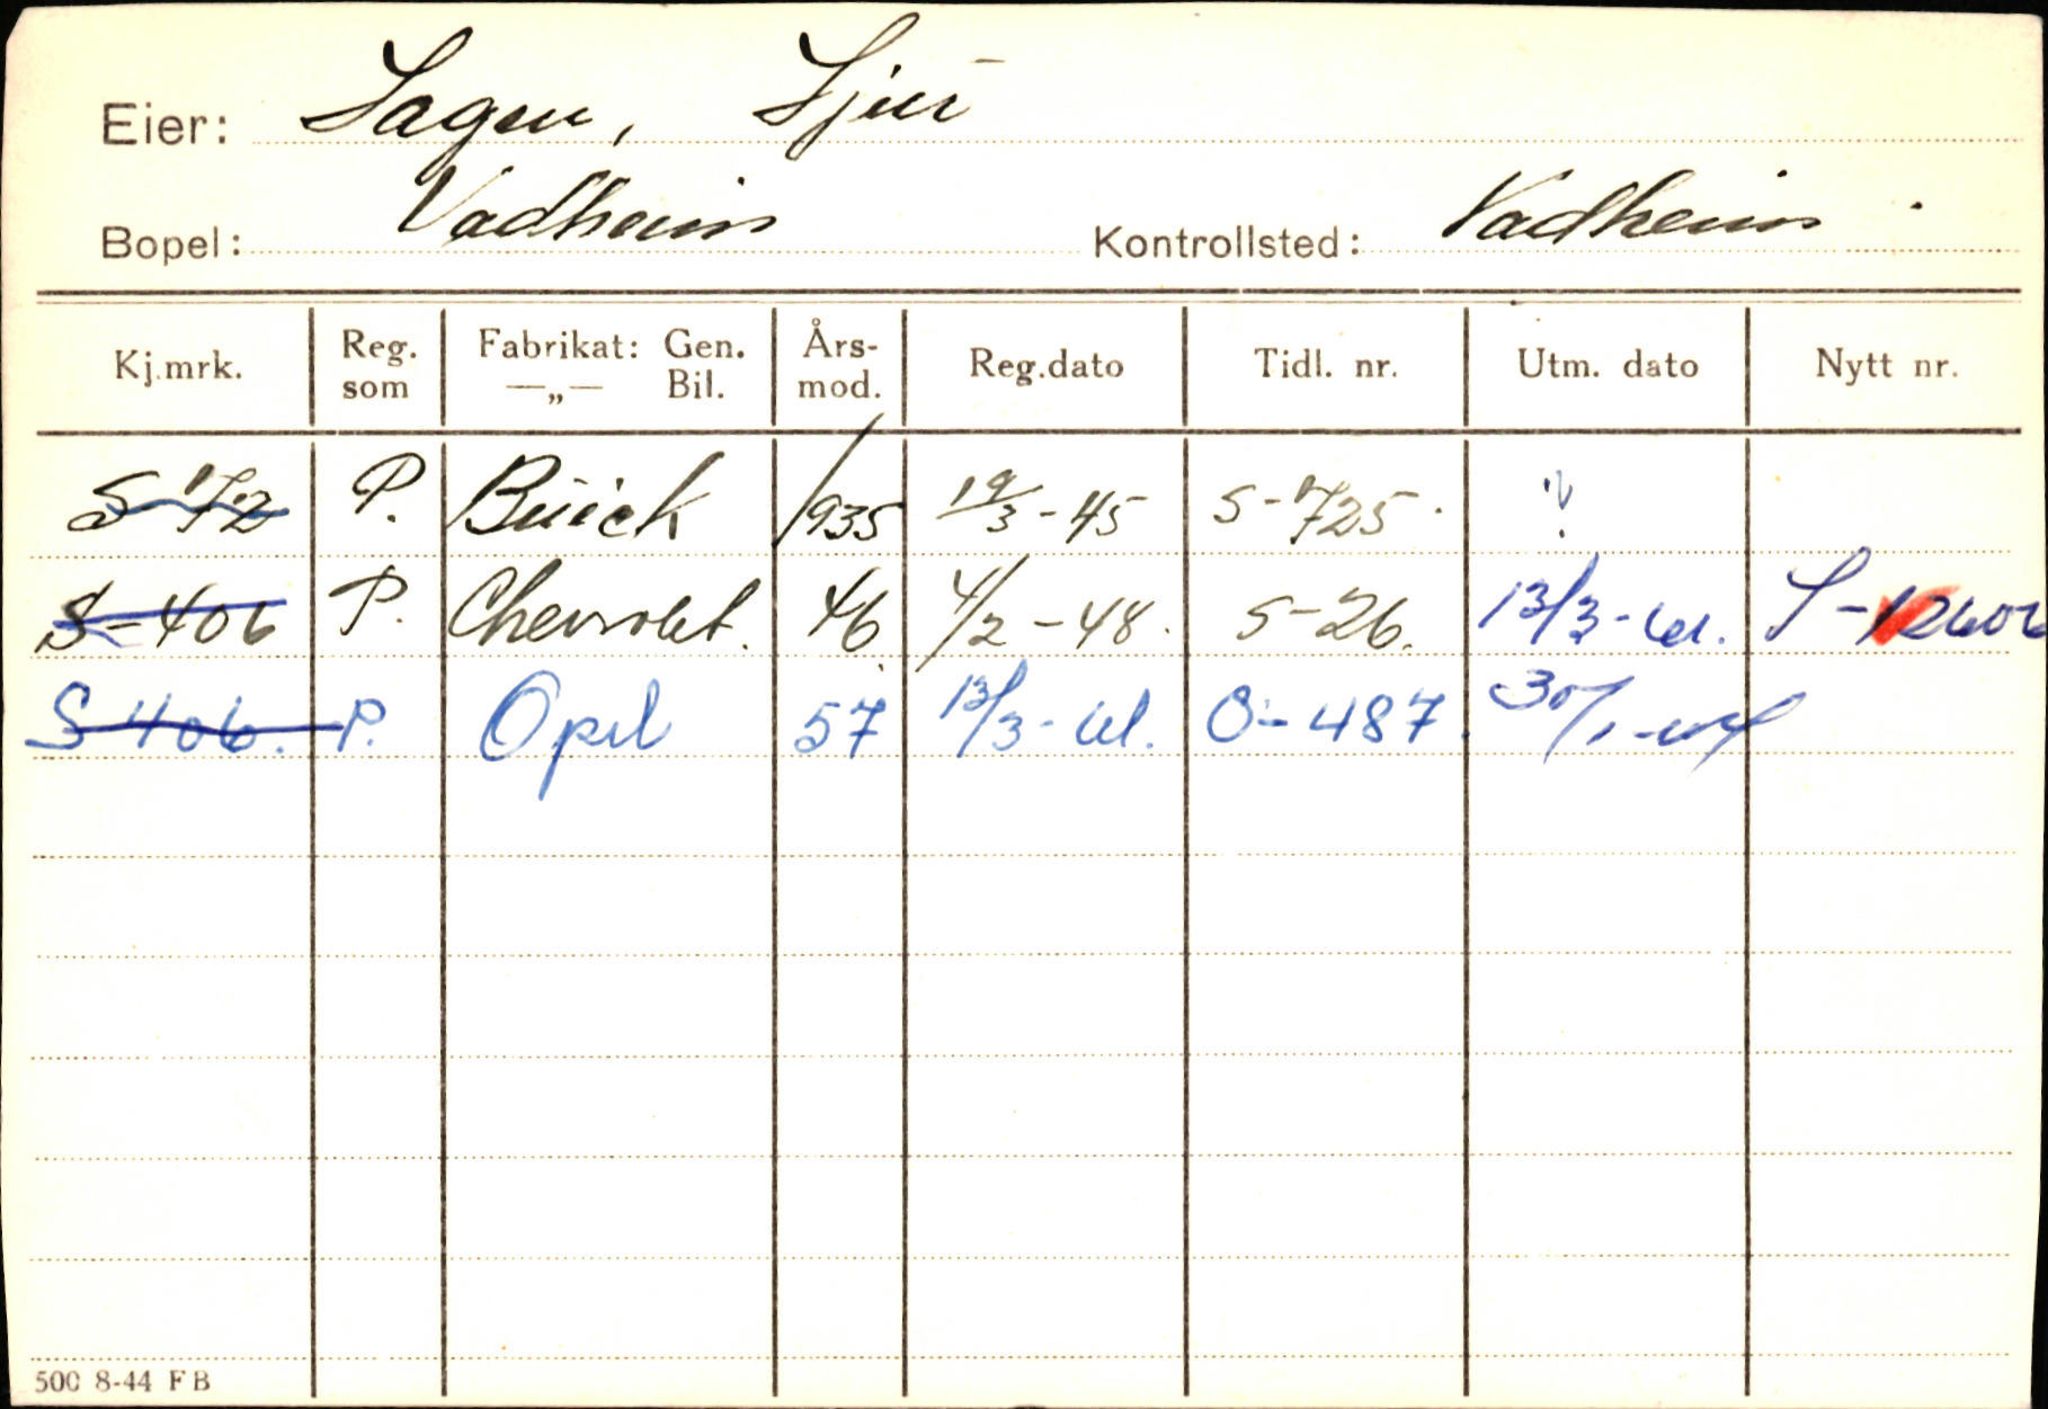 Eier: Sagen, Sjur
Bopel: Vadheim Kontrollsted: Vadheim.
Kj.mrk. Reg. som Fabrikat: Gen. —„— Bil. Års-mod. Reg.dato Tidl. nr. Utm. dato Nytt nr.
S-72 P. Buick 1935 19/3-45 S-725. ?
S-406 P. Chevrolet. 46 4/2-48. S-26. 13/3-61. S-12606
S 406. P. Opel 57 13/3-61. O-487. 30/1-64
500 8-44 FB